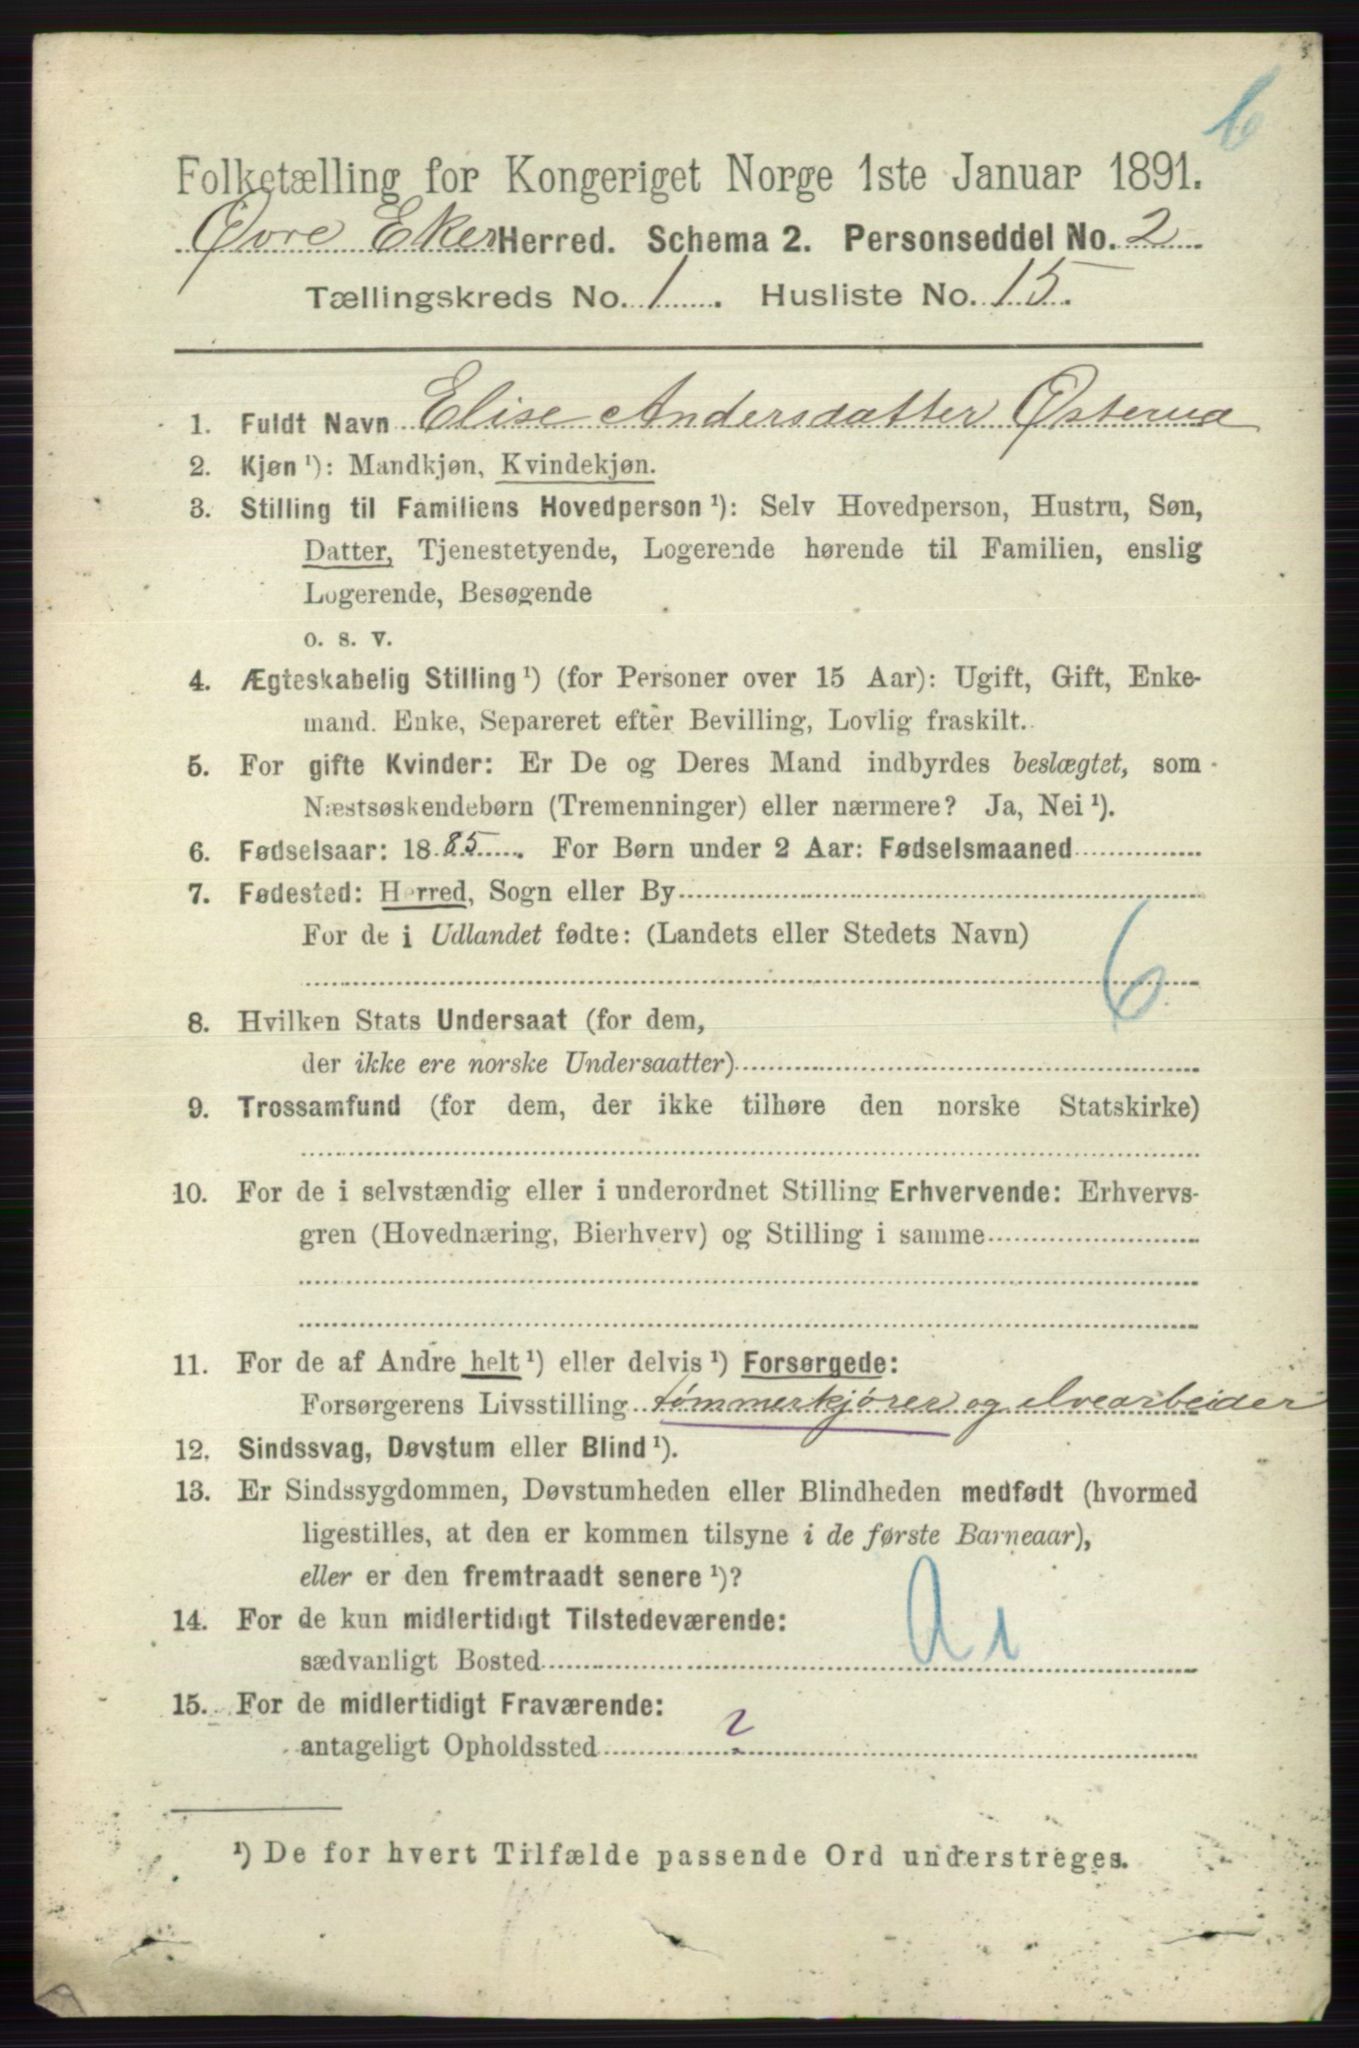 6
Folketælling for Kongeriget Norge 1ste Januar 1891.
Øvre Eker Herred. Schema 2. Personseddel No. 2
Tællingskreds No. 1. Husliste No. 15.
1. Fuldt Navn Elise Andersdatter Østerud
2. Kjøn ¹): Mandkjøn, Kvindekjøn.
3. Stilling til Familiens Hovedperson ¹): Selv Hovedperson, Hustru, Søn,
Datter, Tjenestetyende, Logerende hørende til Familien, enslig
Logerende, Besøgende
o. s. v.
4. Ægteskabelig Stilling ¹) (for Personer over 15 Aar): Ugift, Gift, Enke-
mand. Enke, Separeret efter Bevilling, Lovlig fraskilt.
5. For gifte Kvinder: Er De og Deres Mand indbyrdes beslægtet, som
Næstsøskendebørn (Tremenninger) eller nærmere? Ja, Nei ¹).
6. Fødselsaar: 1885. For Børn under 2 Aar: Fødselsmaaned
7. Fødested: Herred, Sogn eller By
For de i Udlandet fødte: (Landets eller Stedets Navn)
6
8. Hvilken Stats Undersaat (for dem,
der ikke ere norske Undersaatter)
9. Trossamfund (for dem, der ikke tilhøre den norske Statskirke)
10. For de i selvstændig eller i underordnet Stilling Erhvervende: Erhvervs-
gren (Hovednæring, Bierhverv) og Stilling i samme
11. For de af Andre helt ¹) eller delvis ¹) Forsørgede:
Forsørgerens Livsstilling tømmerkjører og elvearbeider
12. Sindssvag, Døvstum eller Blind ¹).
13. Er Sindssygdommen, Døvstumheden eller Blindheden medfødt (hvormed
ligestilles, at den er kommen tilsyne i de første Barneaar),
eller er den fremtraadt senere ¹)?
14. For de kun midlertidigt Tilstedeværende:
sædvanligt Bosted
15. For de midlertidigt Fraværende:
antageligt Opholdssted 2
¹) De for hvert Tilfælde passende Ord understreges.